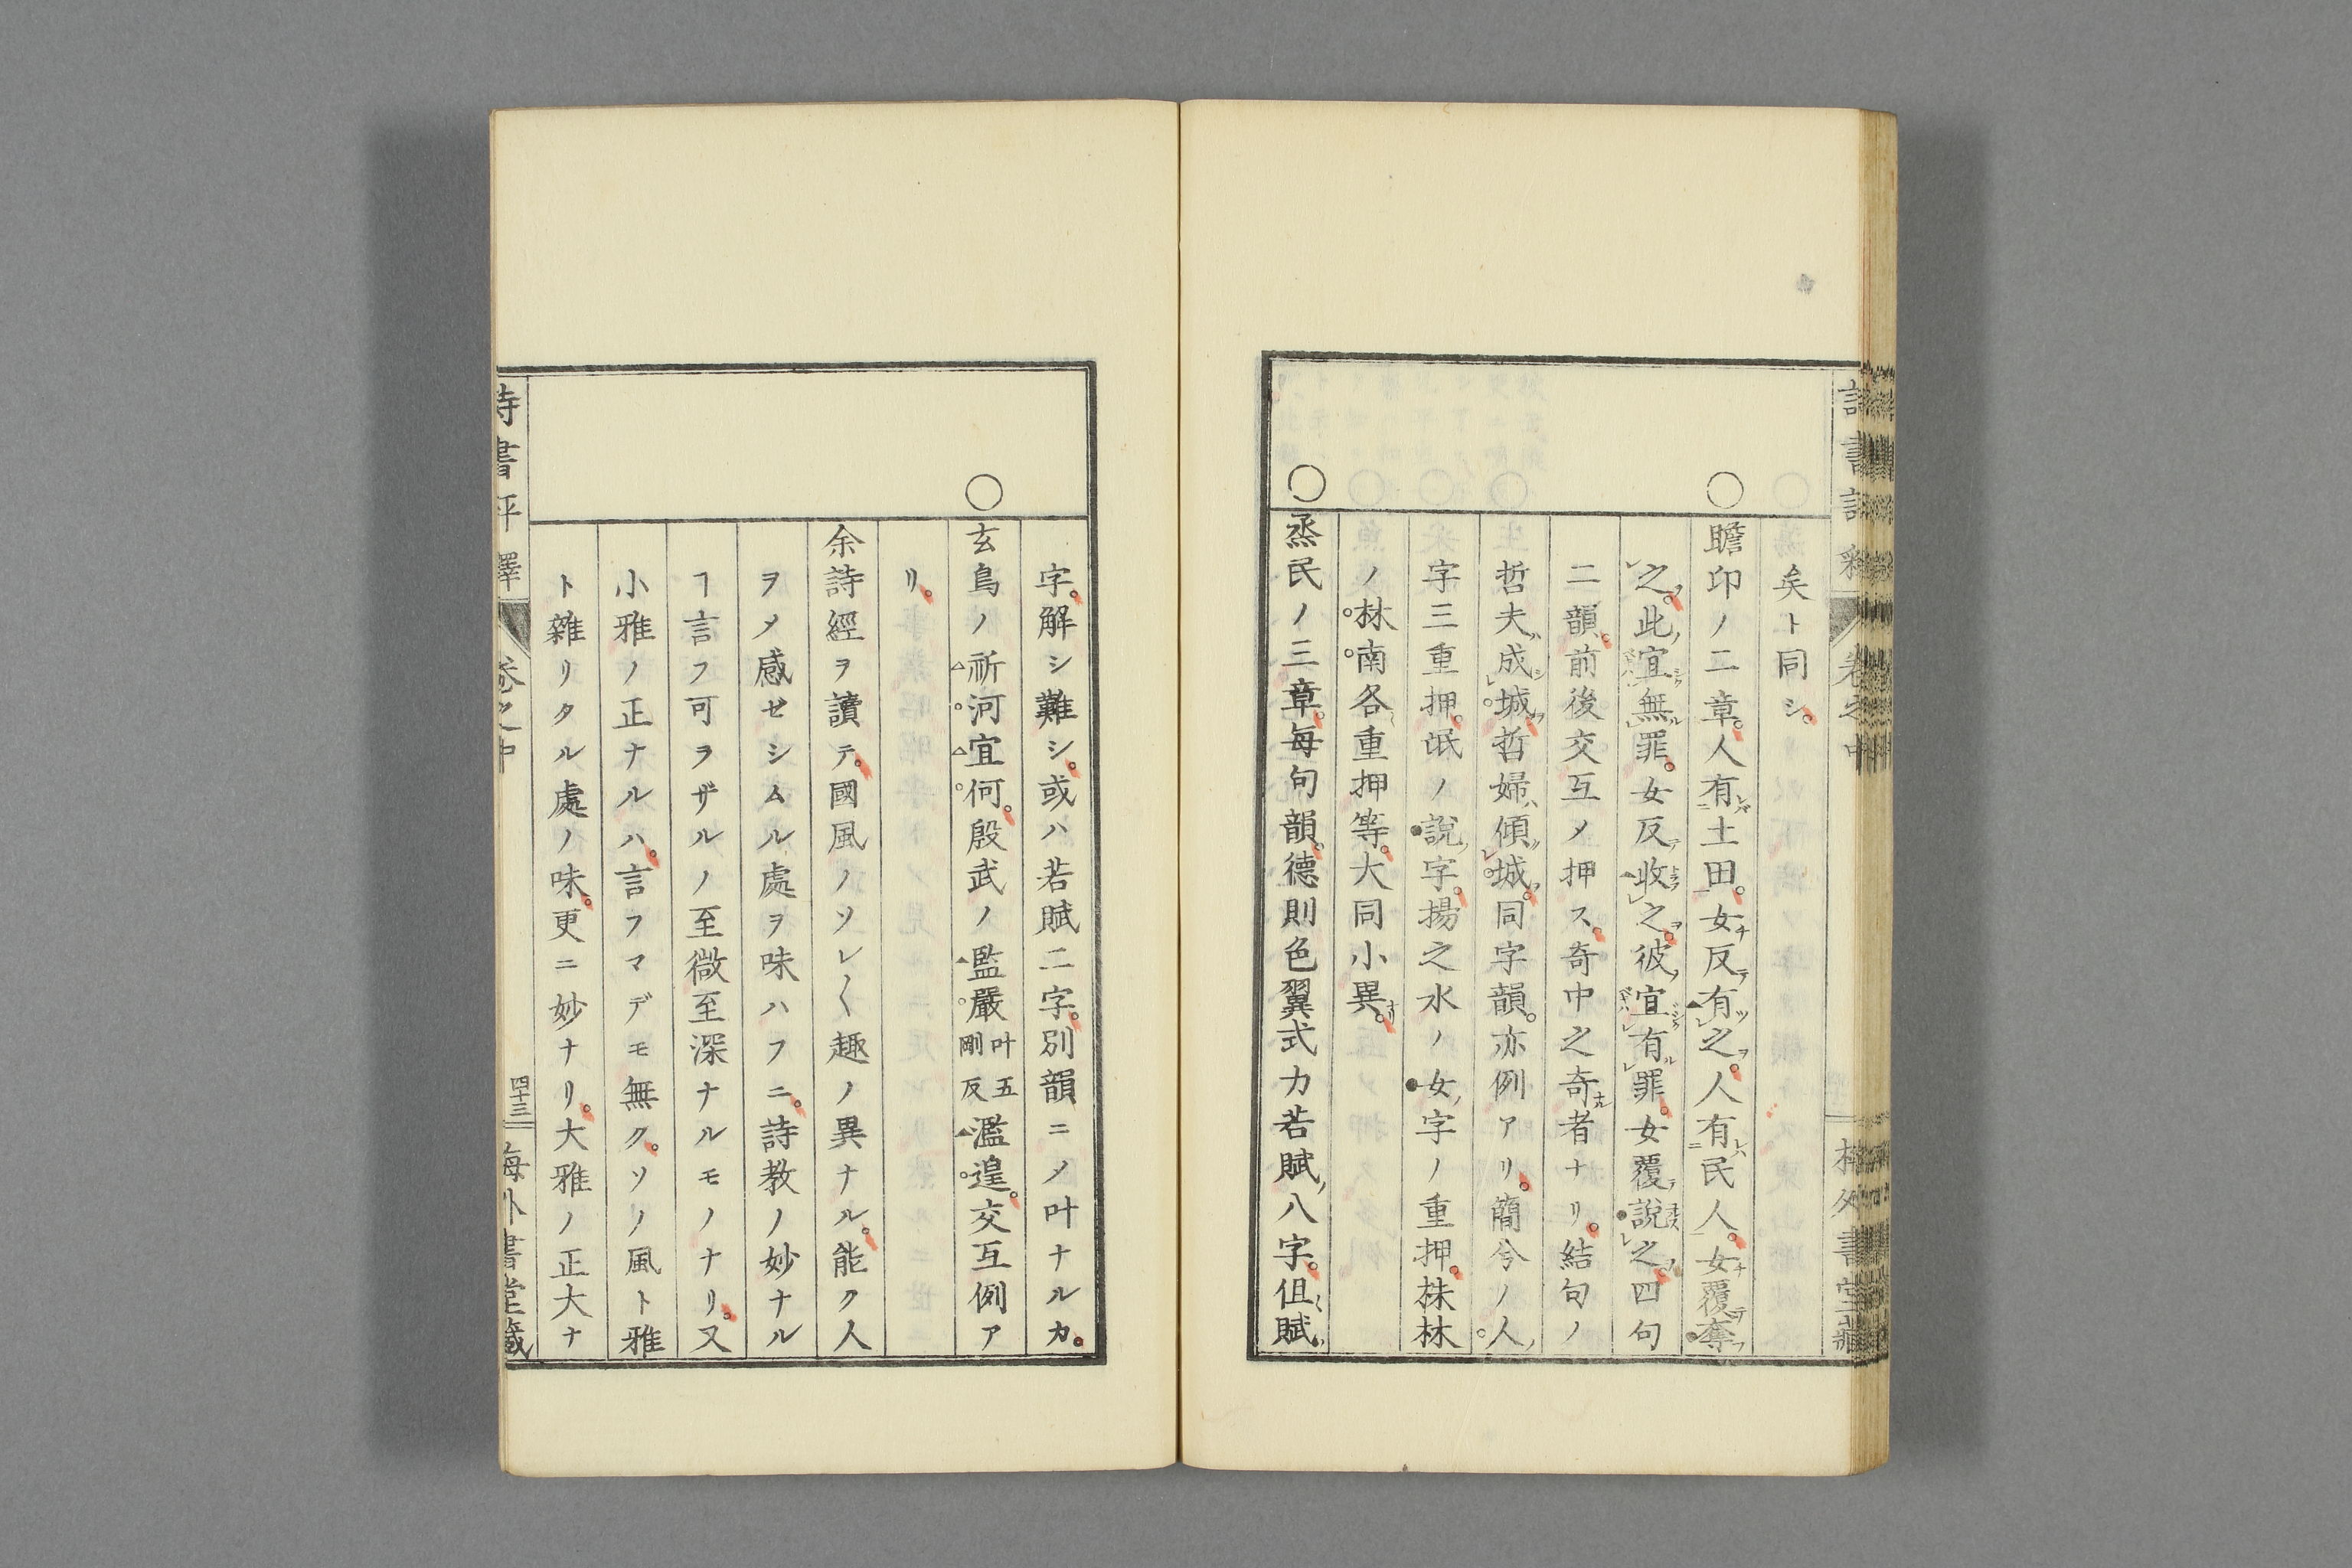 矣ト同シ。
○瞻卬ノ二章。人有土田。女反有之。人有民人。女覆奪
之。此宜無罪。女反收之。彼宜有罪。女覆說之。四句
二韻。前後交互メ押ス。奇中之奇者ナリ。結句ノ
哲夫成城。哲婦傾城。同字韻。亦例アリ。簡兮ノ人
字三重押。氓ノ說字。揚之水ノ女字ノ重押。株林
ノ林南各重押等。大同小異。
○烝民ノ三章。每句韻。德則色翼式力若賦八字。但賦
字。解シ難シ。或ハ若賦二字。別韻ニメ叶ナルカ。
○玄鳥ノ祈河宜何。殷武ノ監嚴叶五剛反濫遑。交互例ア
リ。
余詩經ヲ讀テ。國風ノソレ〱趣ノ異ナル。能ク人
ヲメ感ゼシムル處ヲ味ハフニ。詩教ノ妙ナル
ヿ言フ可ラザルノ至微至深ナルモノナリ。又
小雅ノ正ナルハ。言フマデモ無ク。ソノ風ト雅
ト雜リタル處ノ味。更ニ妙ナリ。大雅ノ正大ナ
詩書評釋
卷之中
四十三
海外書堂藏